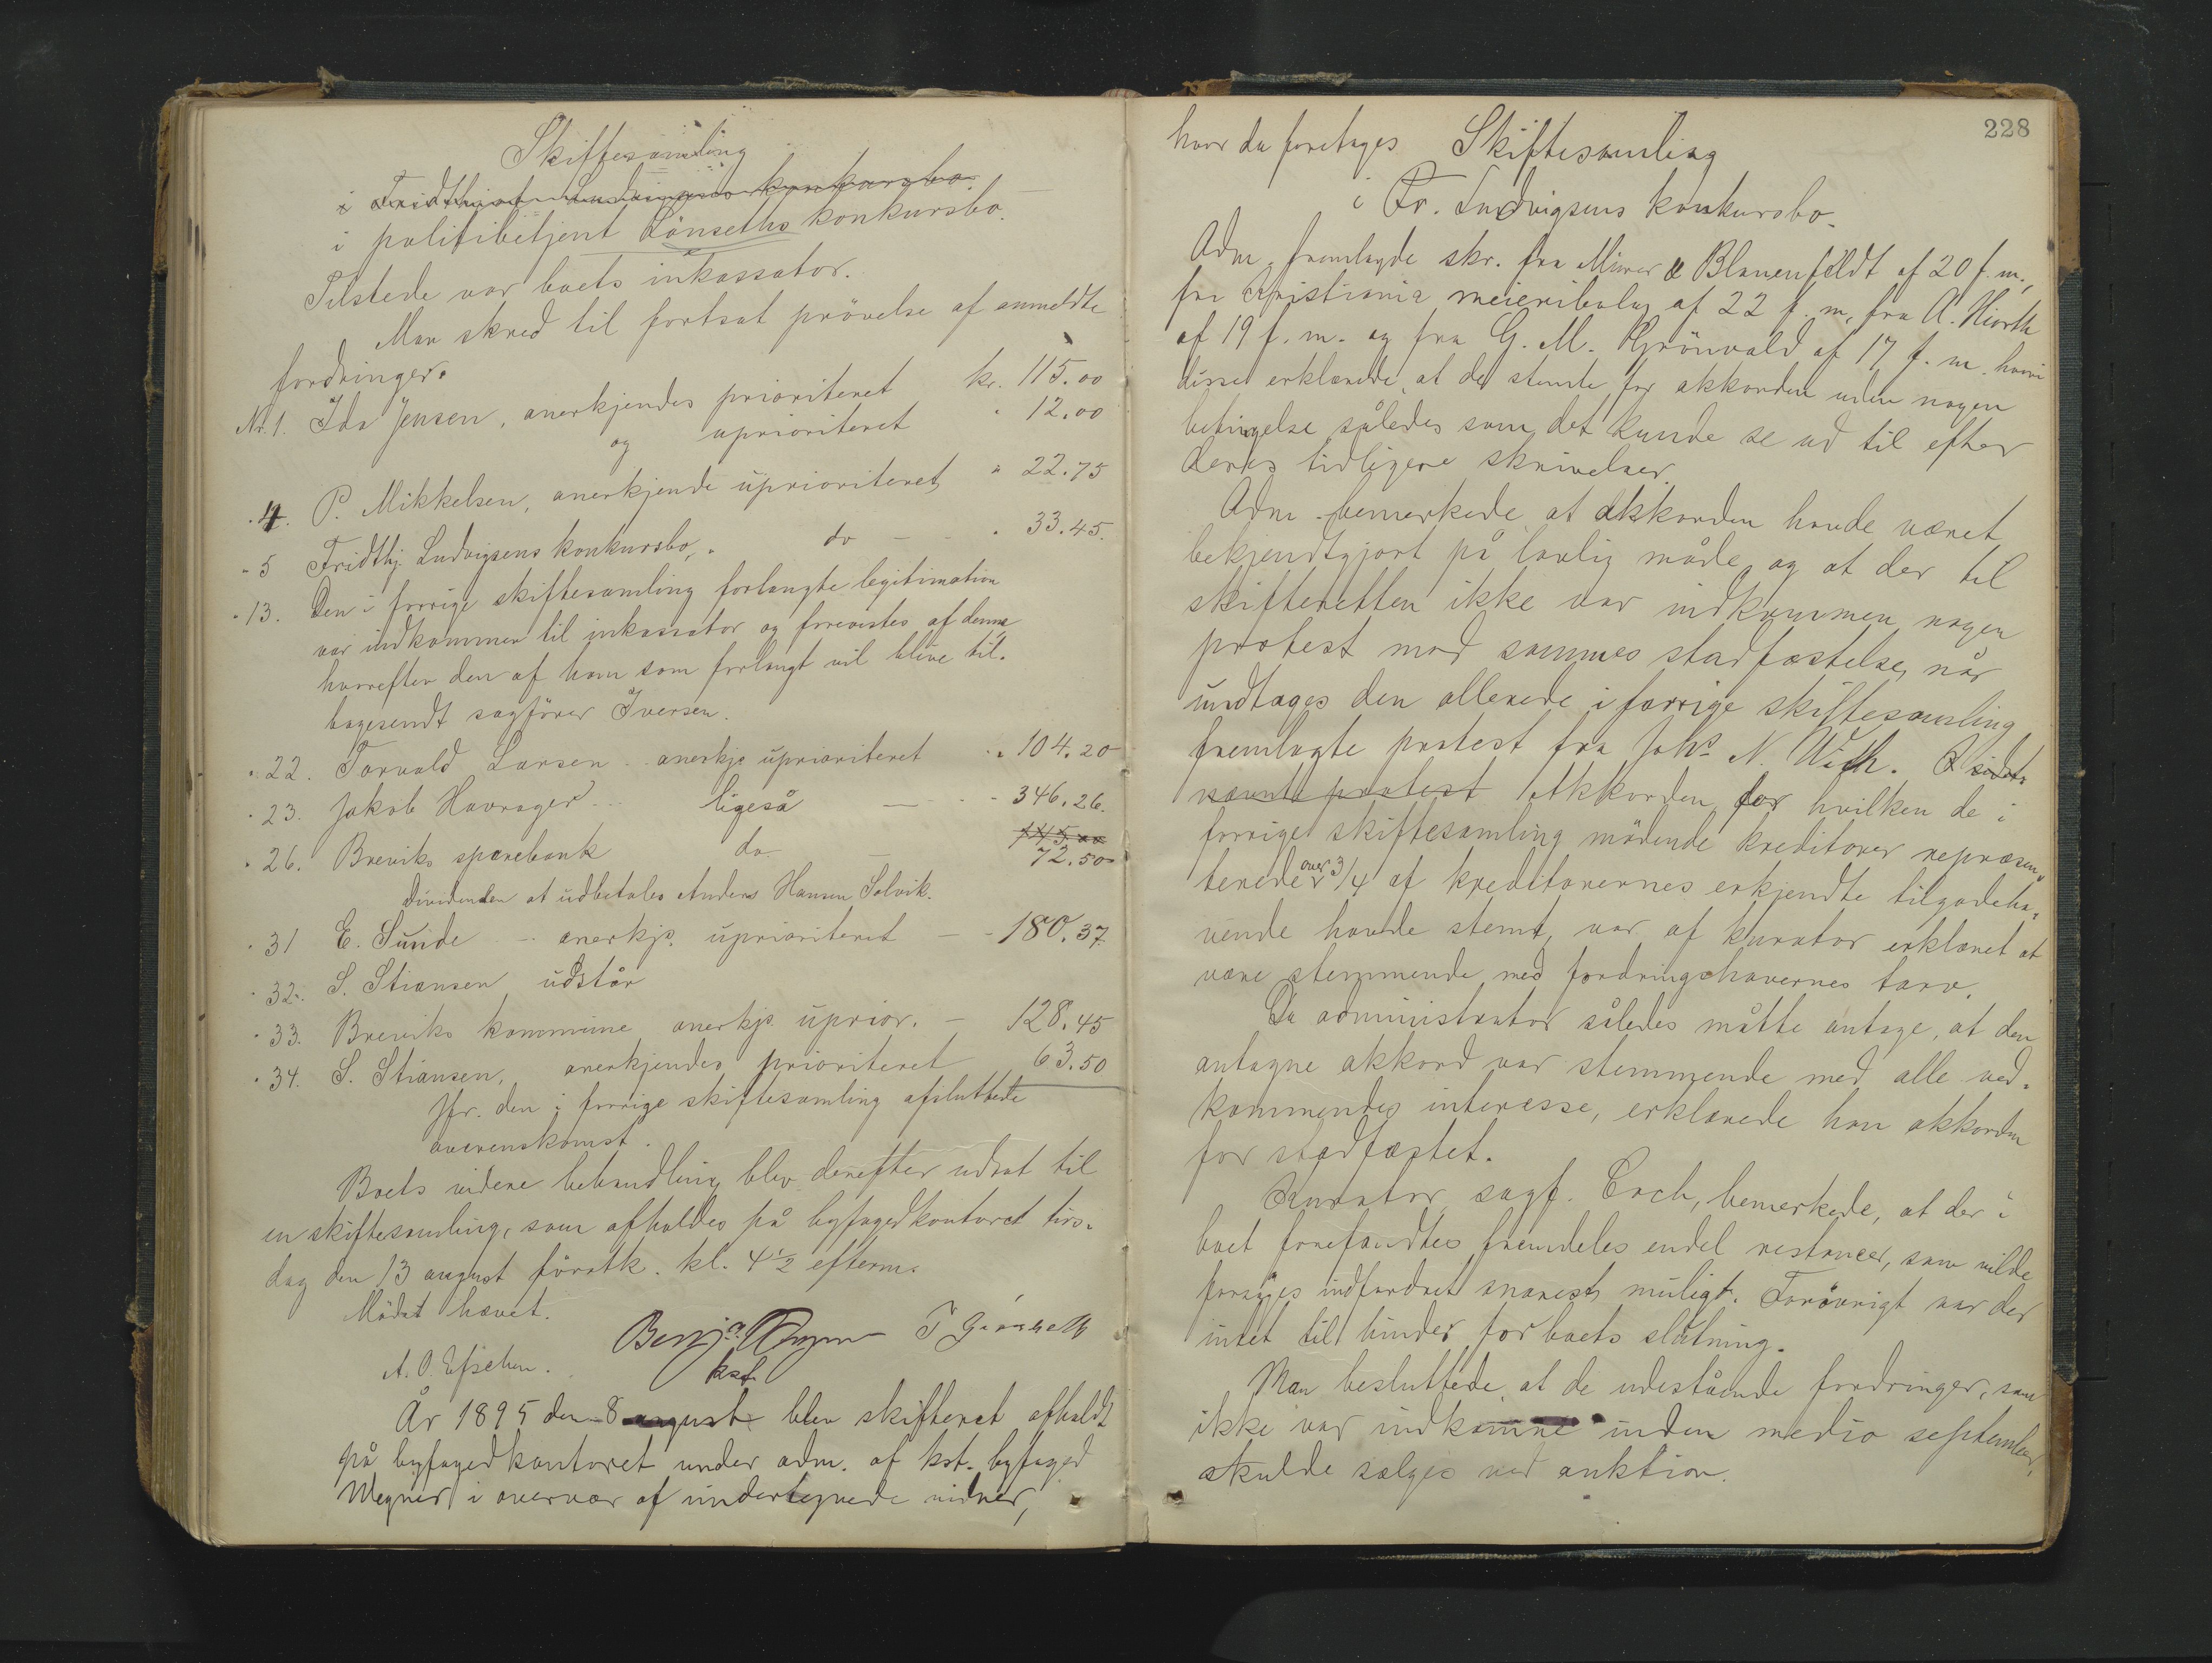 Skiftesamling
i Fridthjof Ludvigsens konkursbo.
i politibetjent Lønseths konkursbo.
Tilstede var boets inkassator.
Man skred til fortsat prövelse af anmeldte
fordringer.
Nr. 1. Ida Jensen, anerkjendes prioriteret kr. 115.00
og uprioriteret " 12.00
" 4. P. Mikkelsen, anerkjende uprioriteret " 22.75
" 5 Fridthj. Ludvigsens konkursbo, do - " 33.45.
" 13. Den i forrige skiftesamling forlangte legitimation
var indkommen til inkassator og forevistes af denne
hvorefter den af ham som forlangt vil blive til-
bagesendt sagförer Iversen.
" 22. Torvald Larsen anerkjs uprioriteret " 104.20
" 23. Jakob Havrager ligeså - 346.26.
" 26. Breviks sparebank do - 145.00
72.50
Dividenden at udbetales Anders Hansen Solvik.
" 31 E. Sunde - anerkjs. uprioriteret - 180.37
" 32. S. Stiansen udstår
" 33. Breviks kommune anerkjs. uprior. - 128.45
" 34. S. Stiansen, anerkjendes prioriteret 63.50
Jfr. den i forrige skiftesamling afsluttede
overenskomst.
Boets videre behandling blev derefter udsat til
en skiftesamling, som afholdes på byfogedkontoret tirs-
dag den 13 august förstk. kl. 4 1/2 efterm.
Mödet hævet.
Benj.
kst.
A. O.
År 1895 den 8 august blev skifteret afholdt
på byfogedkontoret under adm. af kst. byfoged
Wegner i overvær af undertegnede vidner,
228
hvor da foretoges Skiftesamling
i Fr. Ludvigsens konkursbo.
Adm. fremlagde skr. fra Mürer & Blumenfeldt af 20 f. m.,
fra Kristiania meieribolag af 22 f. m., fra A. Hiorth
af 19 f. m. og fra G. M. Grönvald af 17 f. m. hvori
disse erklærede, at de stemte for akkorden uden nogen
betingelse således som det kunde se ud til efter
deres tidligere skrivelser.
Adm. bemerkede at akkorden havde været
bekjendtgjort på lovlig måde og at der til
skifteretten ikke var indkommen nogen
protest mod sammes stadfæstelse, når
undtages den allerede i forrige skiftesamling
fremlagte protest fra Johs N. Wiðh. I sidst-
nævnte protest Akkorden for hvilken de i
forrige skiftesamling mödende kreditorer repræsen-
terede over 3/4 af kreditorernes erkjendte tilgodeha-
vende havde stemt, var af kurator erklæret at
være stemmende med fordringshavernes tarv.
Da administrator således måtte antage, at den
antagne akkord var stemmende med alle ved-
kommendes interesse, erklærede han akkorden
for stadfæstet.
Kurator, sagf. Coch, bemerkede, at der i
boet forefandtes fremdeles endel restancer, som vilde
forsøges indfordret snarest muligt. Forövrigt var der
intet til hinder for boets slutning.
Man besluttede at de udestående fordringer, som
ikke var indkomne inden medio september,
skulde sælges ved auktion.